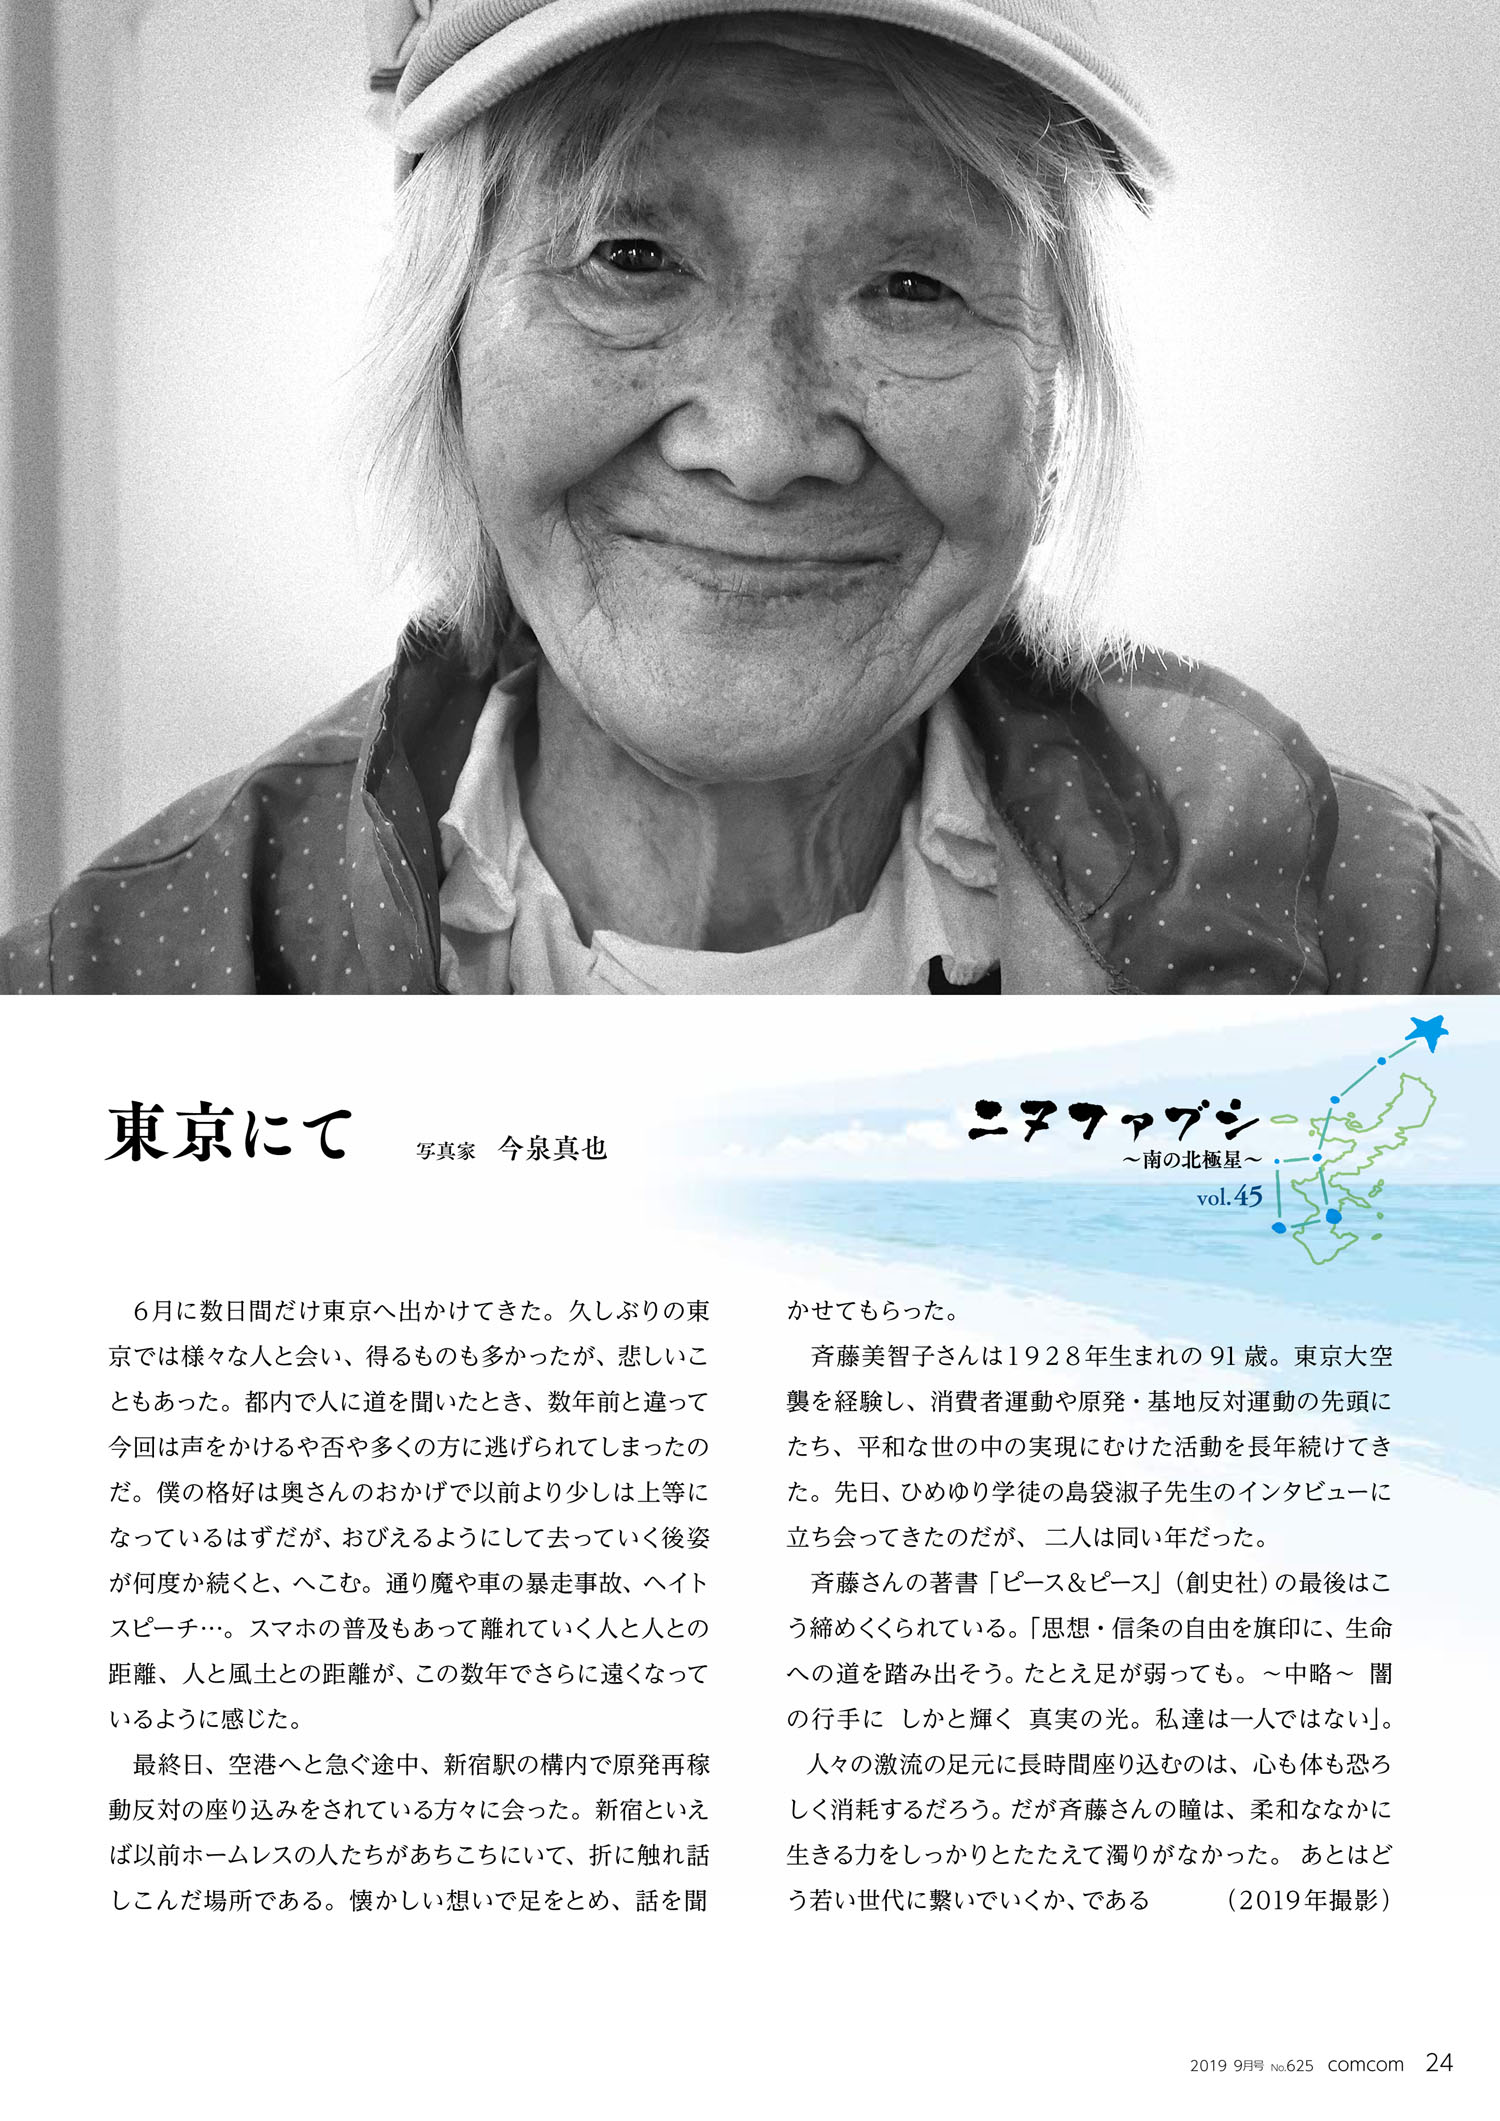 東京にて
写真家 今泉真也
ニヌファブシ
～南の北極星～
vol.45
6月に数日間だけ東京へ出かけてきた。久しぶりの東
京では様々な人と会い、得るものも多かったが、悲しいこ
ともあった。都内で人に道を聞いたとき、数年前と違って
今回は声をかけるや否や多くの方に逃げられてしまったの
だ。僕の格好は奥さんのおかげで以前より少しは上等に
なっているはずだが、おびえるようにして去っていく後姿
が何度か続くと、へこむ。通り魔や車の暴走事故、ヘイト
スピーチ…。スマホの普及もあって離れていく人と人との
距離、人と風土との距離が、この数年でさらに遠くなって
いるように感じた。
最終日、空港へと急ぐ途中、新宿駅の構内で原発再稼
動反対の座り込みをされている方々に会った。新宿といえ
ば以前ホームレスの人たちがあちこちにいて、折に触れ話
しこんだ場所である。懐かしい想いで足をとめ、話を聞
かせてもらった。
斉藤美智子さんは1928年生まれの91歳。東京大空
襲を経験し、消費者運動や原発・基地反対運動の先頭に
たち、平和な世の中の実現にむけた活動を長年続けてき
た。先日、ひめゆり学徒の島袋淑子先生のインタビューに
立ち会ってきたのだが、二人は同い年だった。
斉藤さんの著書「ピース&ピース」（創史社）の最後はこ
う締めくくられている。「思想・信条の自由を旗印に、生命
への道を踏み出そう。たとえ足が弱っても。～中略～ 闇
の行手に しかと輝く 真実の光。私達は一人ではない」。
人々の激流の足元に長時間座り込むのは、心も体も恐ろ
しく消耗するだろう。だが斉藤さんの瞳は、柔和ななかに
生きる力をしっかりとたたえて濁りがなかった。あとはど
う若い世代に繋いでいくか、である （2019年撮影）
2019 9月号 No.625 comcom 24